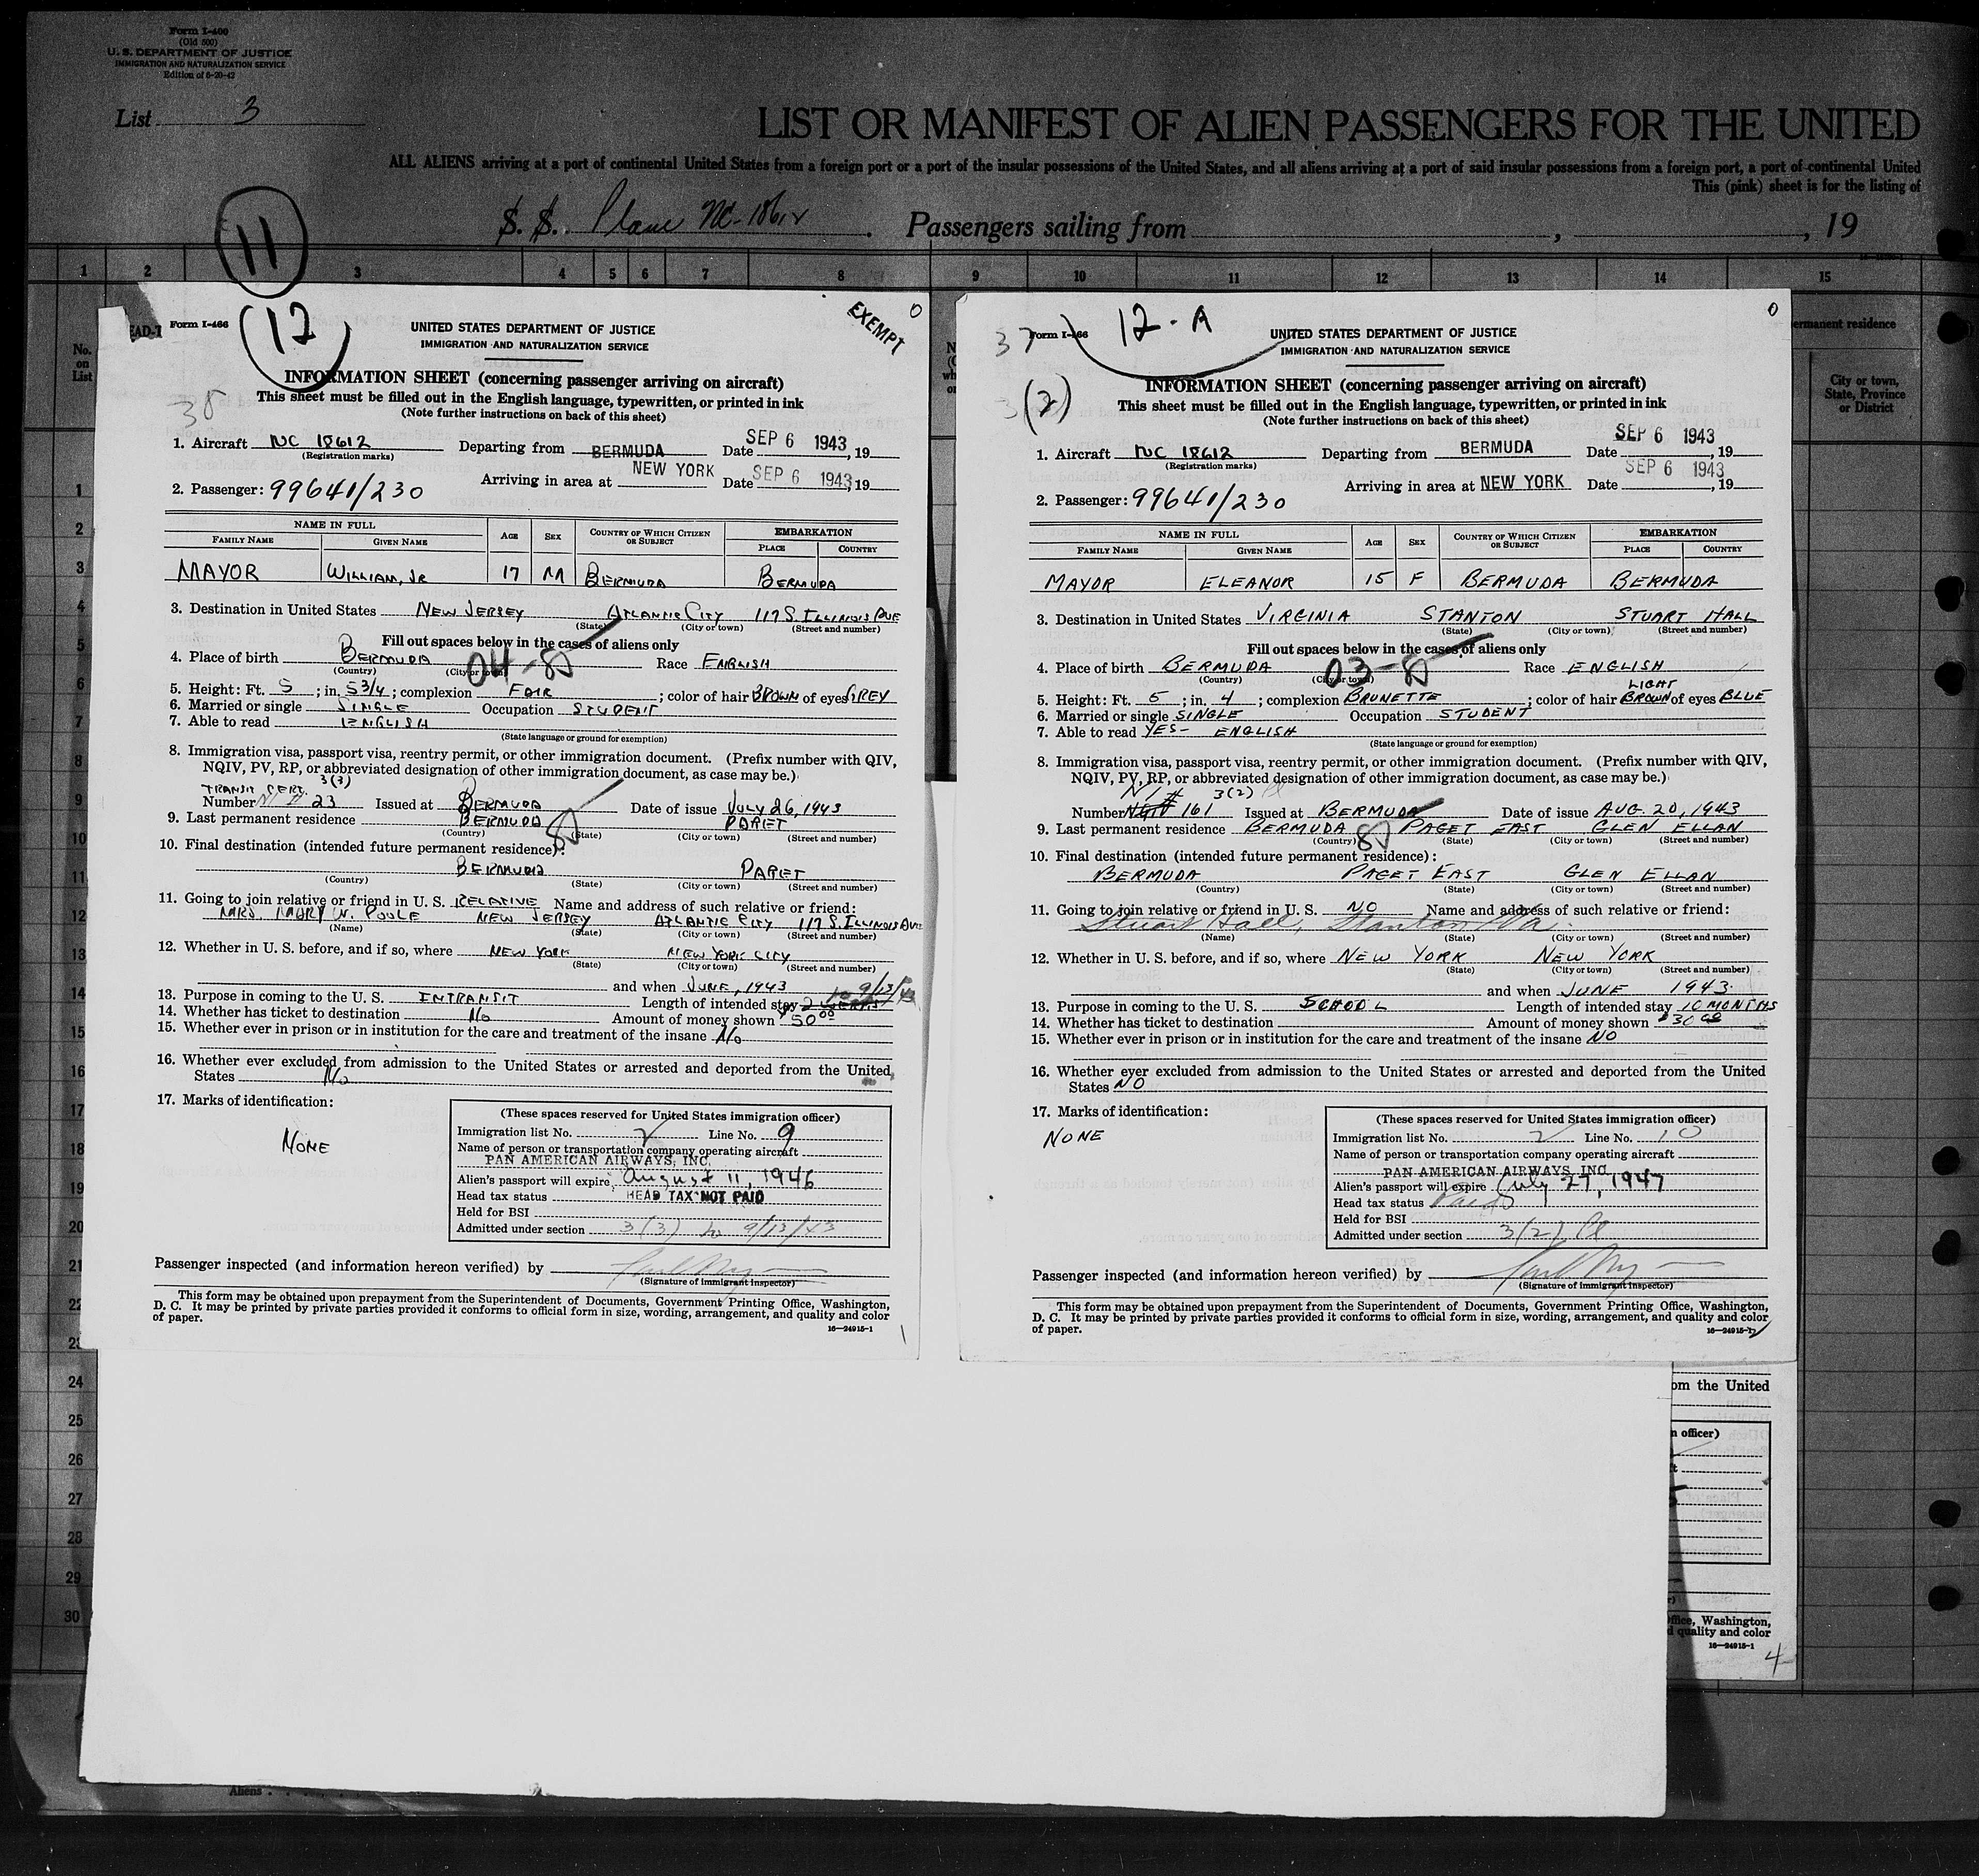 Form I-400
(Old 500)
U. S. DEPARTMENT OF JUSTICE
IMMIGRATION AND NATURALIZATION SERVICE
Edition of 6-20-42
List 3
LIST OR MANIFEST OF ALIEN PASSENGERS FOR THE UNITED
ALL ALIENS arriving at a port of continental United States from a foreign port or a port of the insular possessions of the United States, and all aliens arriving at a port of said insular possessions from a foreign port, a port of continental United
This (pink) sheet is for the listing of
S. S. Plane NC-18612. Passengers sailing from , , 19
11
1 2 3 4 5 6 7 8 9 10 11 12 13 14 15
No. on List
ermanent residence
City or town, State, Province or District
EAD-T
Form I-466
12
EXEMPT
0
UNITED STATES DEPARTMENT OF JUSTICE
IMMIGRATION AND NATURALIZATION SERVICE
38
INFORMATION SHEET (concerning passenger arriving on aircraft)
This sheet must be filled out in the English language, typewritten, or printed in ink
(Note further instructions on back of this sheet)
1. Aircraft NC 18612 Departing from BERMUDA Date SEP 6 1943, 19
(Registration marks)
Arriving in area at NEW YORK Date SEP 6 1943, 19
2. Passenger: 99641/230
NAME IN FULL AGE SEX COUNTRY OF WHICH CITIZEN OR SUBJECT EMBARKATION
FAMILY NAME GIVEN NAME PLACE COUNTRY
MAYOR WILLIAM, JR 17 M BERMUDA BERMUDA
3. Destination in United States NEW JERSEY ATLANTIC CITY 117 S. ILLINOIS AVE
(State) (City or town) (Street and number)
Fill out spaces below in the cases of aliens only
4. Place of birth BERMUDA Race ENGLISH
(Country) (City or town)
04-
5. Height: Ft. 5; in. 5 3/4; complexion FAIR; color of hair BROWN of eyes GREY
6. Married or single SINGLE Occupation STUDENT
7. Able to read ENGLISH
(State language or ground for exemption)
8. Immigration visa, passport visa, reentry permit, or other immigration document. (Prefix number with QIV,
NQIV, PV, RP, or abbreviated designation of other immigration document, as case may be.)
TRANSIT CERT. 3(3)
Number 23 Issued at BERMUDA Date of issue JULY 26, 1943
9. Last permanent residence BERMUDA PAGET
(Country) (State) (City or town) (Street and number)
10. Final destination (intended future permanent residence):
BERMUDA PAGET
(Country) (State) (City or town) (Street and number)
11. Going to join relative or friend in U. S. RELATIVE Name and address of such relative or friend:
MRS. MARY W. POOLE NEW JERSEY ATLANTIC CITY 117 S. ILLINOIS AVE
(Name) (State) (City or town) (Street and number)
12. Whether in U. S. before, and if so, where NEW YORK NEW YORK CITY
(State) (City or town) (Street and number)
and when JUNE, 1943
to 9/13/43
13. Purpose in coming to the U. S. INTRANSIT Length of intended stay 2 WEEKS
14. Whether has ticket to destination No Amount of money shown $50.00
15. Whether ever in prison or in institution for the care and treatment of the insane No
16. Whether ever excluded from admission to the United States or arrested and deported from the United
States No
17. Marks of identification:
NONE
(These spaces reserved for United States immigration officer)
Immigration list No. 2 Line No. 9
Name of person or transportation company operating aircraft
PAN AMERICAN AIRWAYS, INC.
Alien's passport will expire August 11, 1946
Head tax status HEAD TAX NOT PAID
Held for BSI
Admitted under section 3(3) to 9/13/43
Passenger inspected (and information hereon verified) by
(Signature of immigrant inspector)
This form may be obtained upon prepayment from the Superintendent of Documents, Government Printing Office, Washington,
D. C. It may be printed by private parties provided it conforms to official form in size, wording, arrangement, and quality and color
of paper.
16—24915-1
1
37
Form I-466
12-A
0
UNITED STATES DEPARTMENT OF JUSTICE
IMMIGRATION AND NATURALIZATION SERVICE
(2)
INFORMATION SHEET (concerning passenger arriving on aircraft)
This sheet must be filled out in the English language, typewritten, or printed in ink
(Note further instructions on back of this sheet)
1. Aircraft NC 18612 Departing from BERMUDA Date SEP 6 1943, 19
(Registration marks)
Arriving in area at NEW YORK Date SEP 6 1943, 19
2. Passenger: 99641/230
NAME IN FULL AGE SEX COUNTRY OF WHICH CITIZEN OR SUBJECT EMBARKATION
FAMILY NAME GIVEN NAME PLACE COUNTRY
MAYOR ELEANOR 15 F BERMUDA BERMUDA
3. Destination in United States VIRGINIA STANTON STUART HALL
(State) (City or town) (Street and number)
Fill out spaces below in the cases of aliens only
4. Place of birth BERMUDA Race ENGLISH
(Country) (City or town)
03-
LIGHT
5. Height: Ft. 5; in. 4; complexion BRUNETTE; color of hair BROWN of eyes BLUE
6. Married or single SINGLE Occupation STUDENT
7. Able to read YES- ENGLISH
(State language or ground for exemption)
8. Immigration visa, passport visa, reentry permit, or other immigration document. (Prefix number with QIV,
NQIV, PV, RP, or abbreviated designation of other immigration document, as case may be.)
3(2)
Number 161 Issued at BERMUDA Date of issue AUG. 20, 1943
9. Last permanent residence BERMUDA PAGET EAST GLEN ELLAN
(Country) (State) (City or town) (Street and number)
10. Final destination (intended future permanent residence):
BERMUDA PAGET EAST GLEN ELLAN
(Country) (State) (City or town) (Street and number)
11. Going to join relative or friend in U. S. NO Name and address of such relative or friend:
Stuart Hall, Stanton Va.
(Name) (State) (City or town) (Street and number)
12. Whether in U. S. before, and if so, where NEW YORK NEW YORK
(State) (City or town) (Street and number)
and when JUNE 1943.
13. Purpose in coming to the U. S. SCHOOL Length of intended stay 10 MONTHS
14. Whether has ticket to destination Amount of money shown $30.00
15. Whether ever in prison or in institution for the care and treatment of the insane NO
16. Whether ever excluded from admission to the United States or arrested and deported from the United
States NO
17. Marks of identification:
NONE
(These spaces reserved for United States immigration officer)
Immigration list No. 2 Line No. 10
Name of person or transportation company operating aircraft
PAN AMERICAN AIRWAYS, INC.
Alien's passport will expire July 27, 1947
Head tax status Paid
Held for BSI
Admitted under section 3(2)
Passenger inspected (and information hereon verified) by
(Signature of immigrant inspector)
This form may be obtained upon prepayment from the Superintendent of Documents, Government Printing Office, Washington,
D. C. It may be printed by private parties provided it conforms to official form in size, wording, arrangement, and quality and color
of paper.
16—24915-1
1
2
3
4
5
6
7
8
9
10
11
12
13
14
15
16
17
18
19
20
21
22
23
24
25
26
27
28
29
30
om the United
n officer)
ffice, Washington,
d quality and color
16—24915-1
4
Aliens